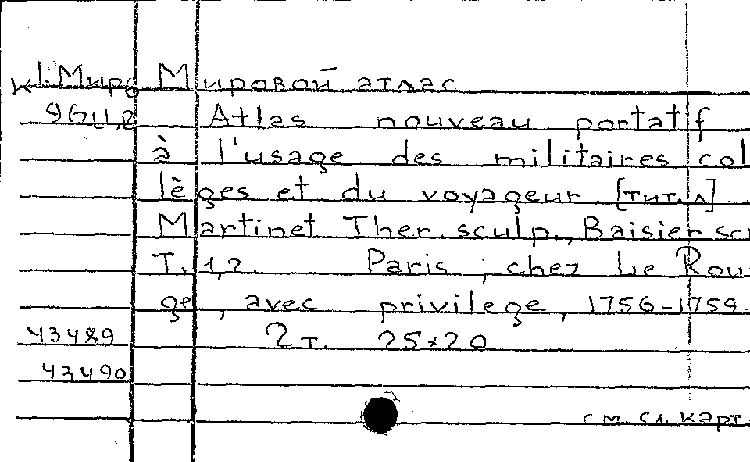 Мировой атлас
Atlas nouveau portatif
à l'usage des militaires col
lèges et du voyageur [тит. л]
Martinet Ther. sculp., Baisier sc
T. 1,2. Paris, chez Le Rou
ge, avec privilege, 1756-1759.
43489 2 т. 25×20
43490
см. сл. карт.